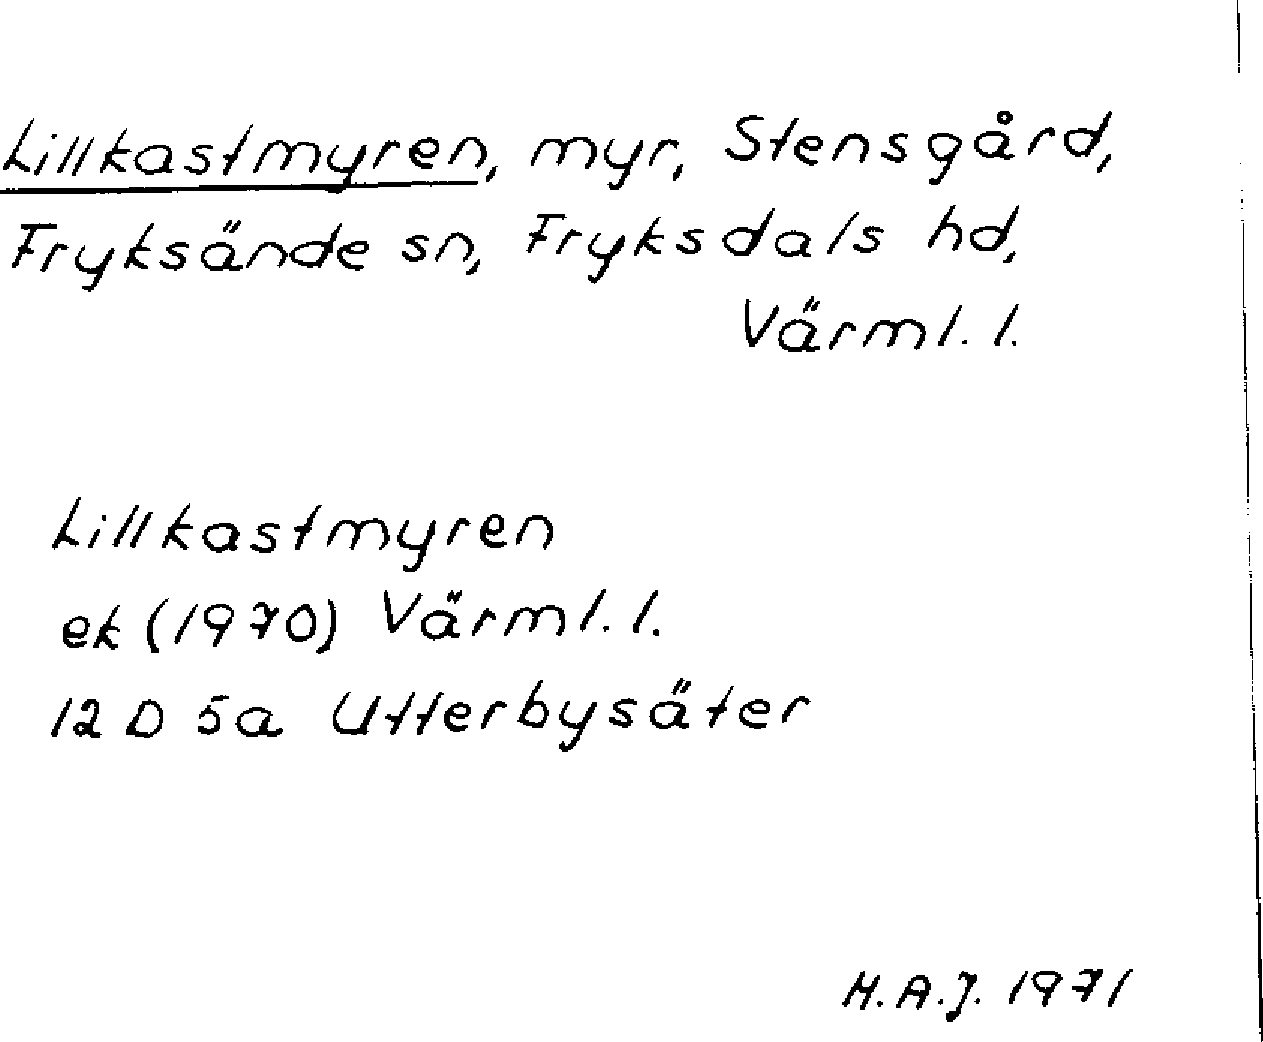 Lillkastmyren, myr, Stensgård,
Fryksände sn, Fryksdals hd,
Värml. l.
Lillkastmyren
ek (1970) Värml. l.
12 D 5a Utterbysäter
H.A.J. 1971